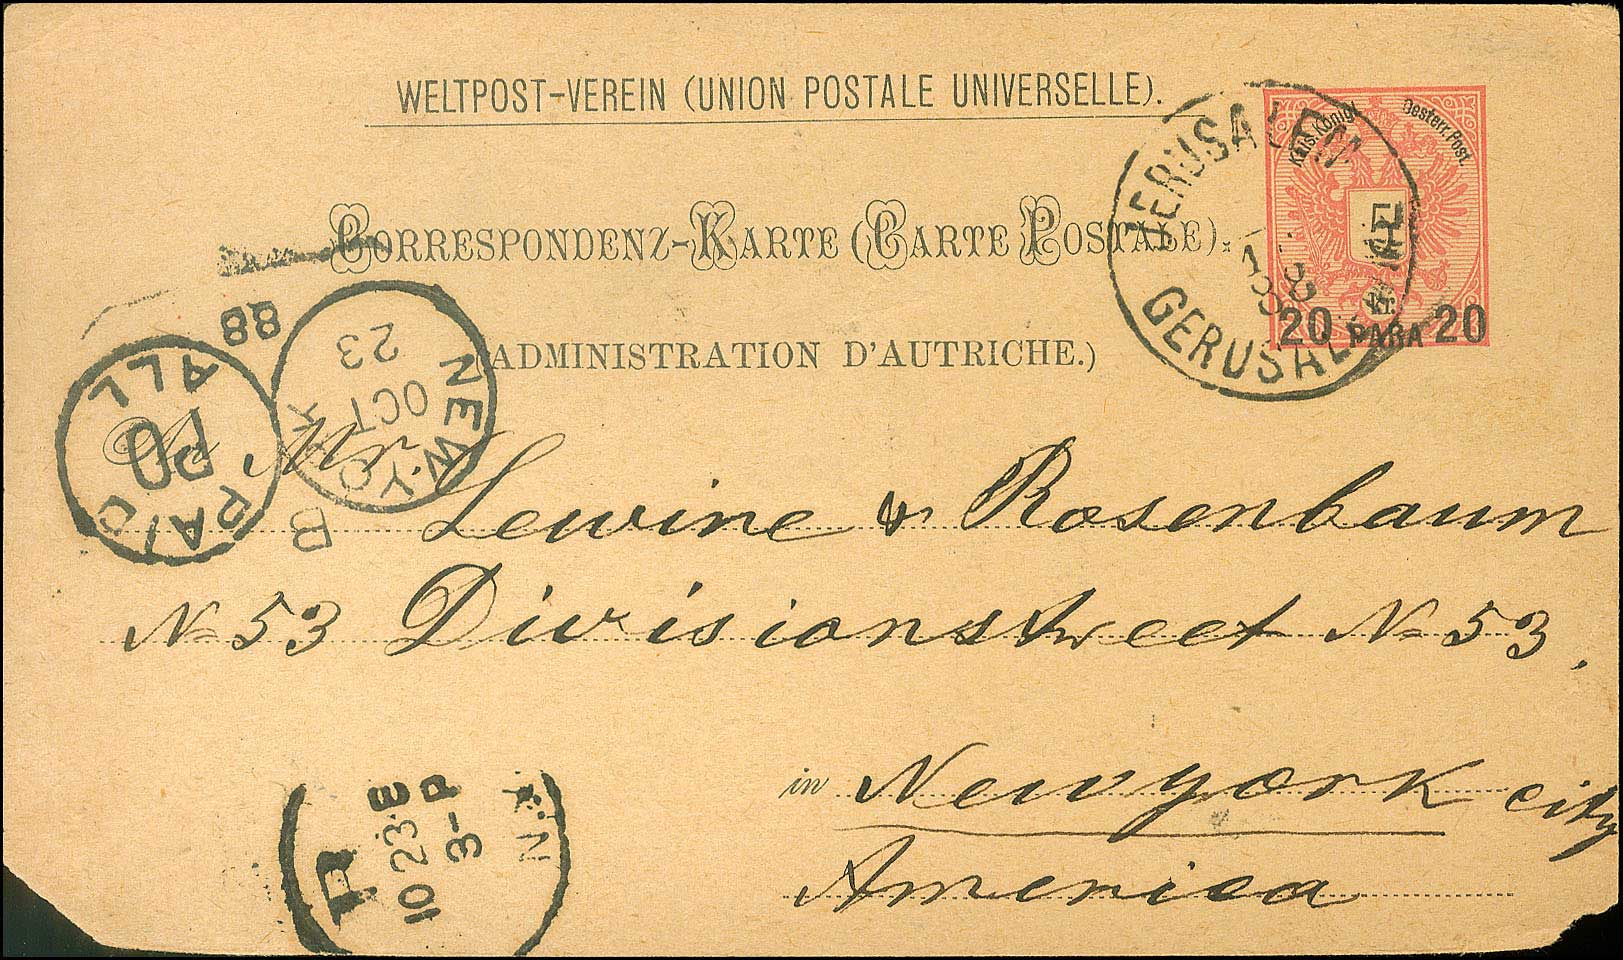 WELTPOST-VEREIN (UNION POSTALE UNIVERSELLE).
CORRESPONDENZ-KARTE (CARTE POSTALE).
(ADMINISTRATION D'AUTRICHE.)
Kais. Königl. Oesterr. Post.
20 PARA 20
JERUSALEM
GERUSALEMME
NEW.YO K
OCT
23
88
B
PAID
ALL
An Mr
Lewine & Rosenbaum
No 53 Divisionstreet No 53.
in Newyork city
America
R
10 23 E
3-P
N.Y.